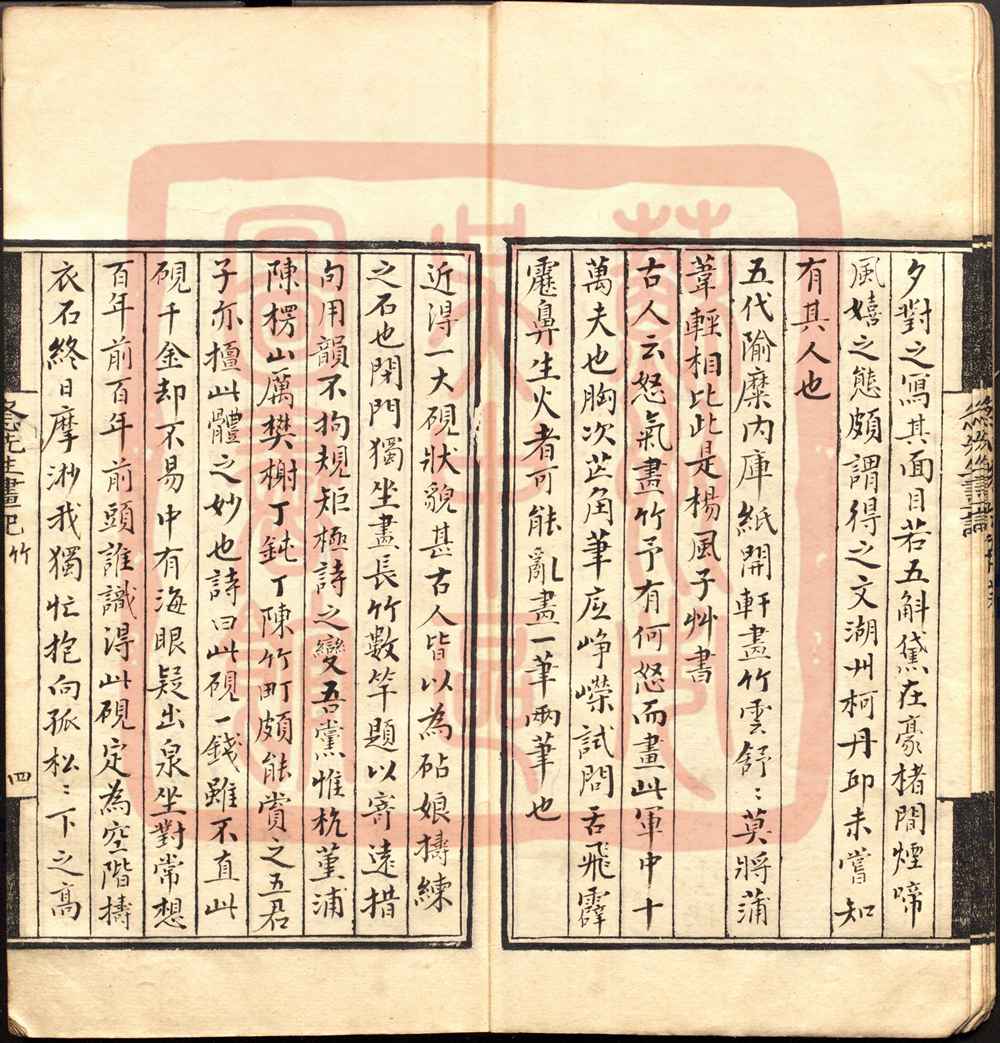 夕對之寫其面目若五斛黛在豪楮間煙啼
風嬉之態頗謂得之文湖州柯丹邱未嘗知
有其人也
五代隃糜內庫紙開軒畫竹雲舒〻莫將蒲
葦輕相比此是楊風子艸書
古人云怒氣畫竹予有何怒而畫此軍中十
萬夫也胸次芒角筆底崢嶸試問舌飛霹
靂鼻生火者可能亂畫一筆兩筆也
近得一大硯狀貌甚古人皆以為砧娘擣練
之石也閉門獨坐畫長竹數竿題以寄遠措
句用韻不拘規矩極詩之變吾黨惟杭堇浦
陳楞山厲樊榭丁鈍丁陳竹町頗能賞之五君
子亦擅此體之妙也詩曰此硯一錢雖不直此
硯千金却不易中有海眼疑出泉坐對常想
百年前百年前頭誰識得此硯定為空階擣
衣石終日摩挱我獨忙抱向孤松〻下之高
冬先生畫記 竹
四